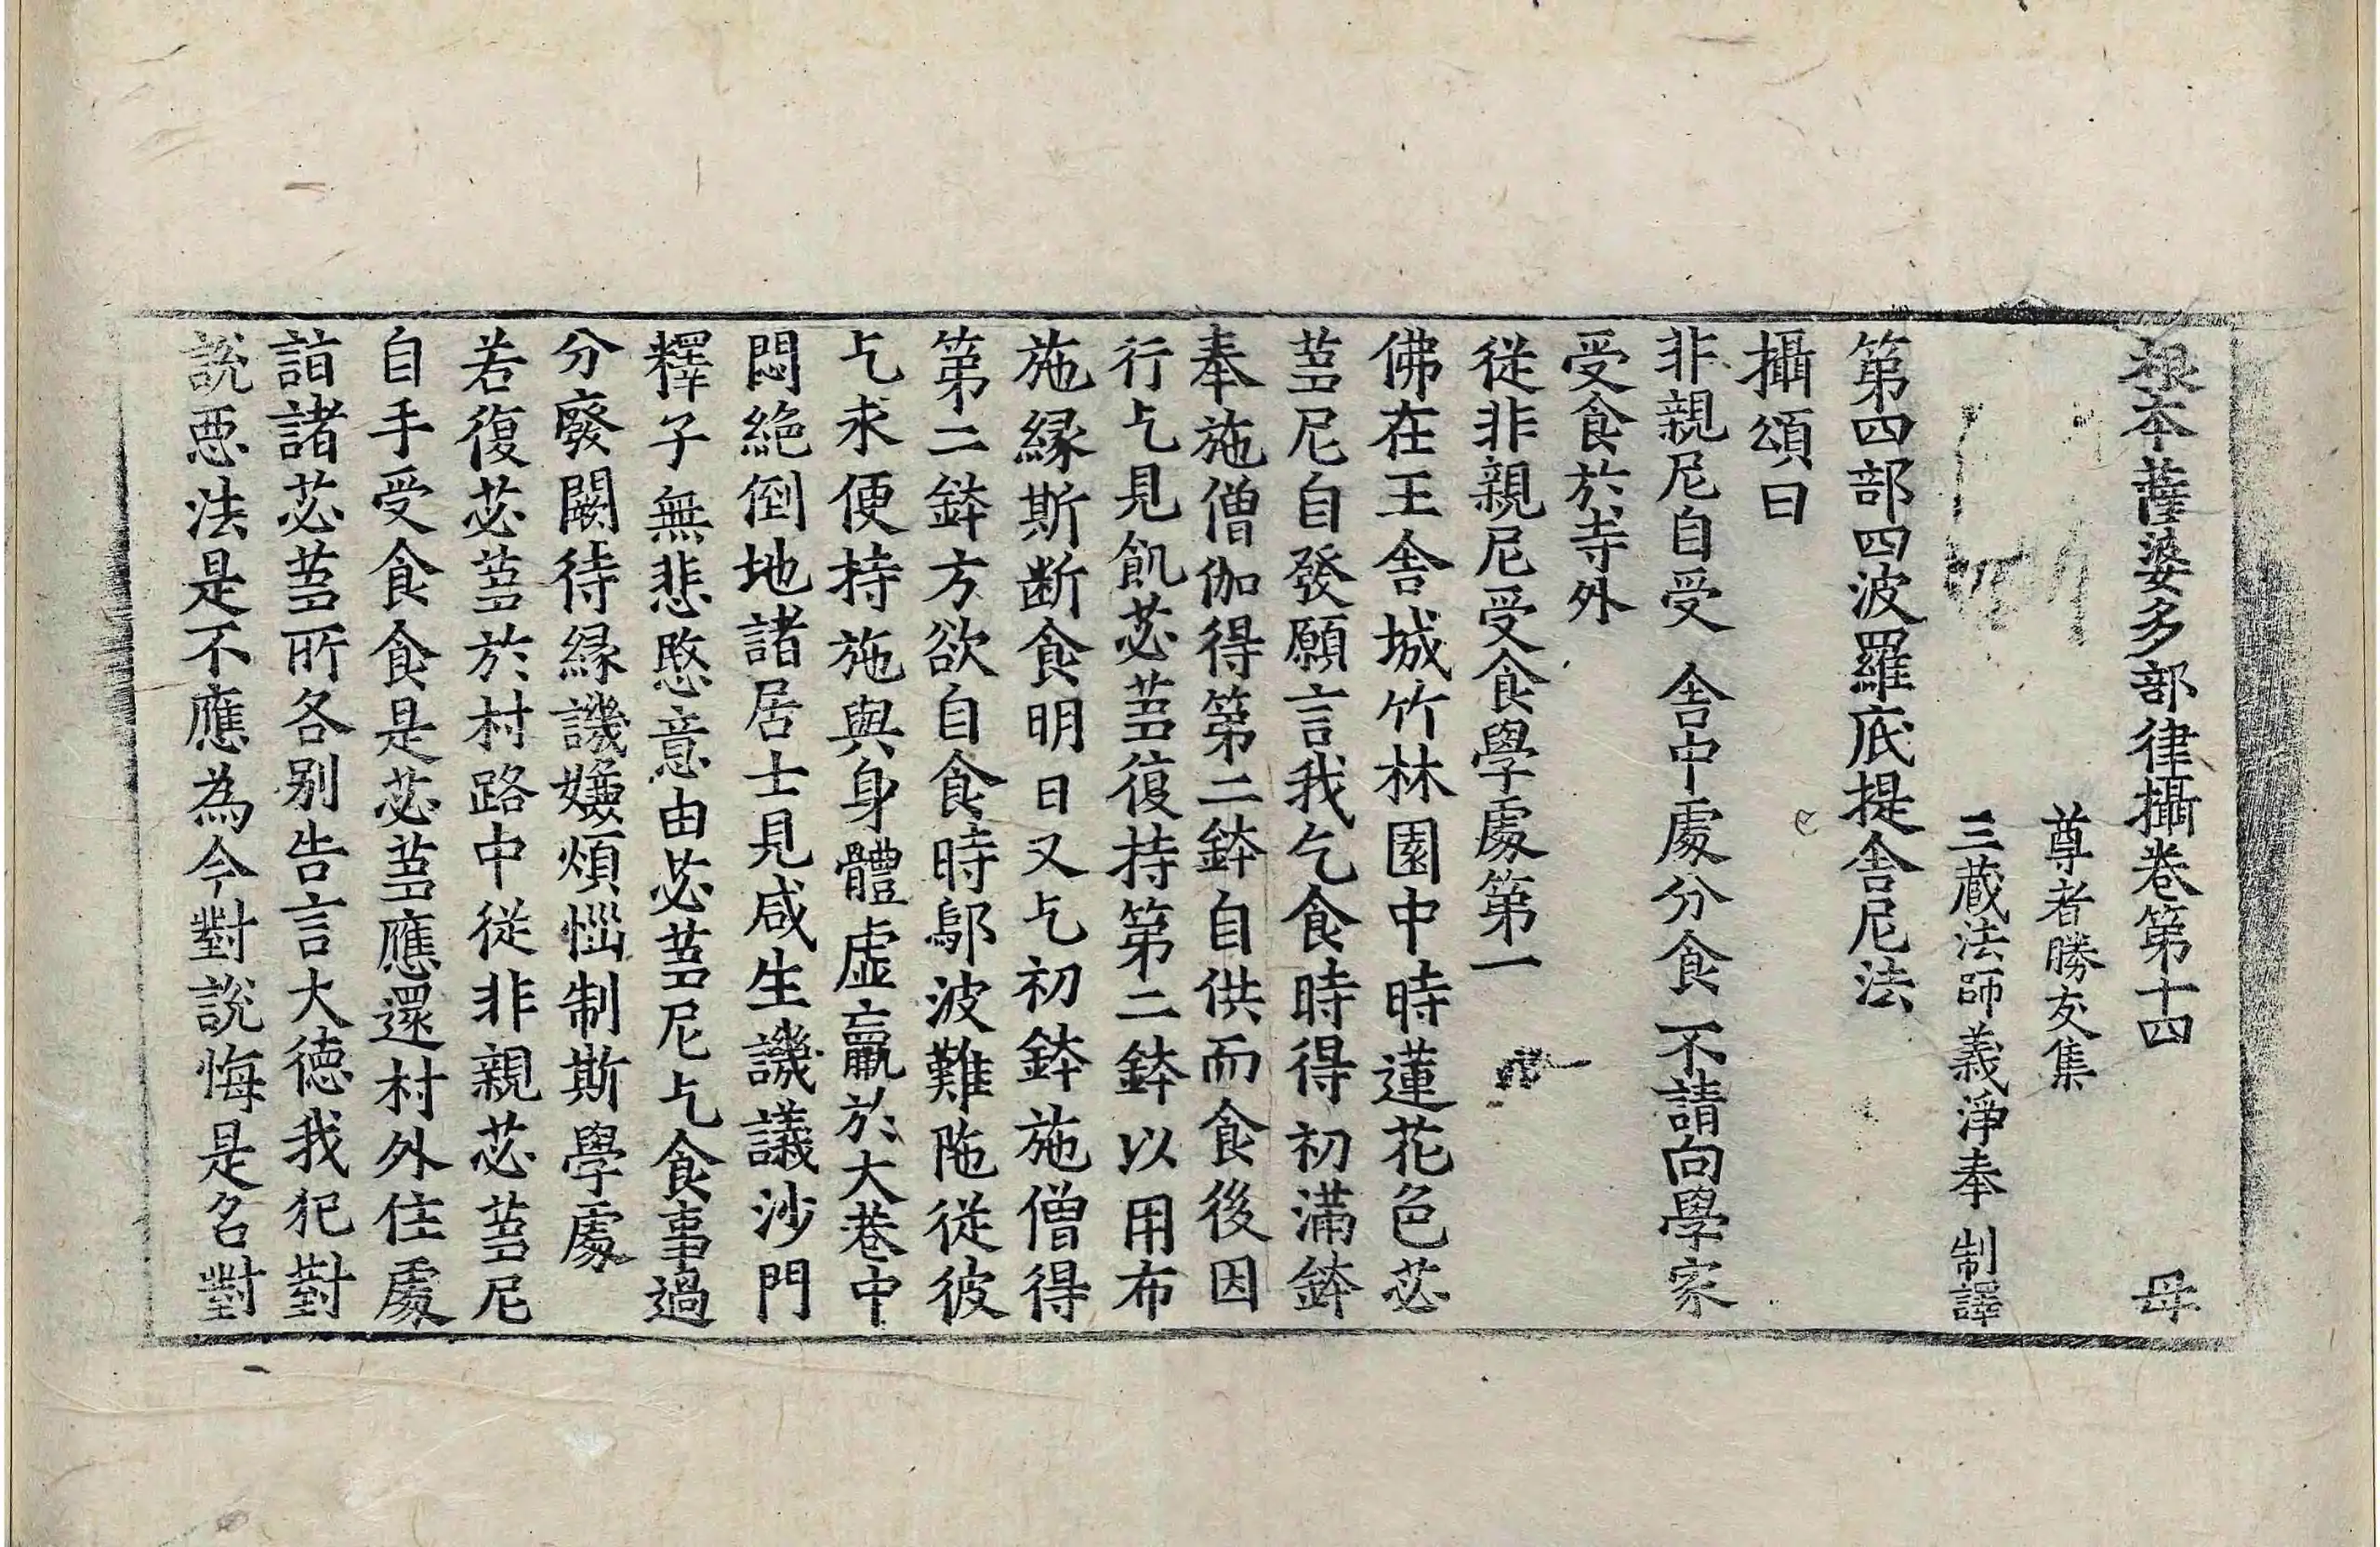 根本薩婆多部律攝卷第十四 母
尊者勝友集
三藏法師義淨奉 制譯
第四部四波羅底提舍尼法
攝頌曰
非親尼自受 舍中處分食 不請向學家
受食於寺外
從非親尼受食學處第一
佛在王舍城竹林園中時蓮花色苾
蒭尼自發願言我乞食時得初滿鉢
奉施僧伽得第二鉢自供而食後因
行乞見飢苾蒭復持第二鉢以用布
施緣斯断食明日又乞初鉢施僧得
第二鉢方欲自食時鄔波難陁從彼
乞求便持施與身體虛羸於大巷中
悶絶倒地諸居士見咸生譏議沙門
釋子無悲愍意由苾蒭尼乞食事過
分廢闕待緣譏嫌煩惱制斯學處
若復苾蒭於村路中從非親苾蒭尼
自手受食食是苾蒭應還村外住處
詣諸苾蒭所各别告言大德我犯對
說惡法是不應為今對說悔是名對